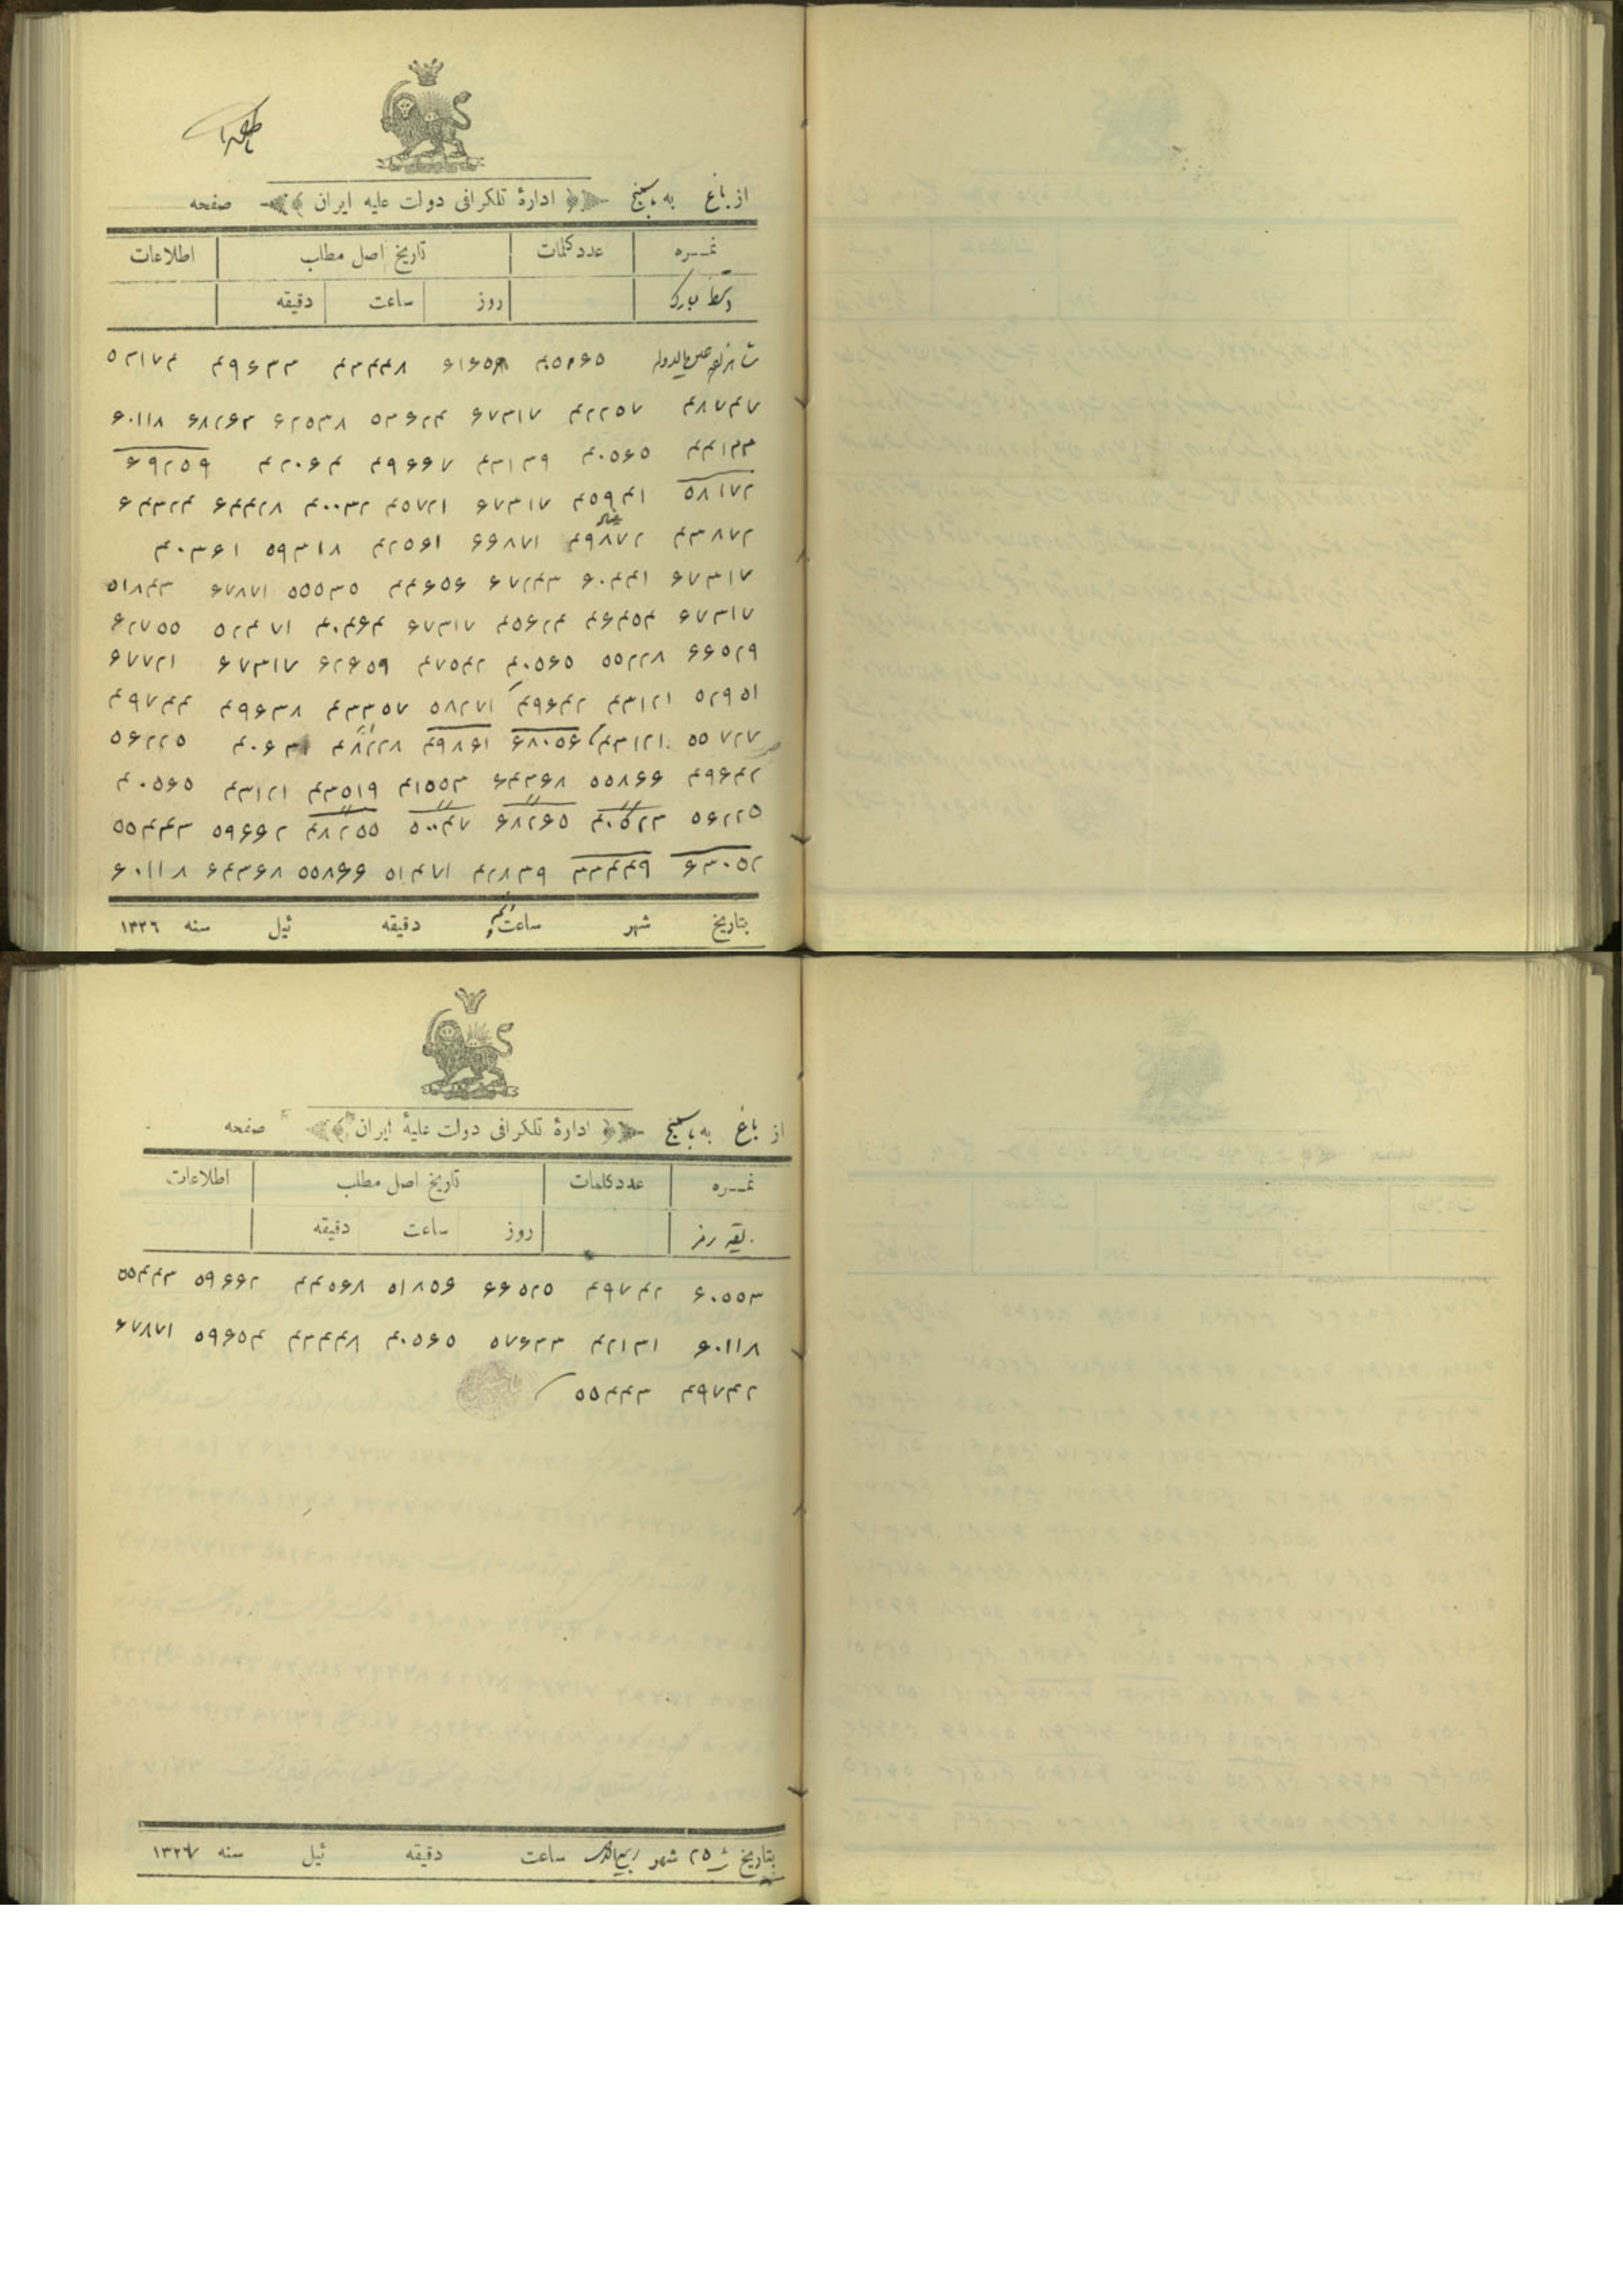 از باغ به باسمنج اداره تلگرافی دولت علیه ایران صفحه
نمره عدد کلمات تاریخ اصل مطلب اطلاعات
دستخط مبارک روز ساعت دقیقه
شاهزاده عین الدوله ۴۳۴۴۸ ۴۹۶۳۳ ۵۲۱۷۴
۴۸۷۴۷ ۴۲۲۵۷ ۶۷۳۱۷ ۵۳۶۲۴ ۶۲۵۳۸ ۶۸۲۶۳ ۶۰۱۱۸
۴۴۱۳۳ ۴۰۵۶۵ ۴۳۱۳۹ ۴۹۶۶۷ ۴۲۰۶۴ ۶۹۲۵۹
۵۸۱۷۲ ۴۵۹۴۱ ۶۷۳۱۷ ۴۵۷۲۱ ۴۰۰۳۲ ۶۴۴۲۸ ۶۴۳۲۴
۴۳۸۷۲ ۴۹۸۷۲ ۶۶۸۷۱ ۴۲۵۶۱ ۵۹۳۱۸ ۴۰۳۶۱
۶۷۳۱۷ ۶۰۴۴۱ ۶۷۲۴۳ ۴۴۶۵۶ ۵۵۵۳۵ ۶۷۸۷۱ ۵۱۸۴۳
۶۷۳۱۷ ۴۵۶۲۴ ۶۷۳۱۷ ۴۰۴۶۴ ۵۲۴۷۱ ۶۲۷۵۵
۶۶۵۲۹ ۵۵۲۲۸ ۴۰۵۶۵ ۴۷۵۴۲ ۶۲۶۵۹ ۶۷۳۱۷ ۶۷۷۲۱
۵۲۹۵۱ ۴۳۱۲۱ ۴۹۶۴۲ ۵۸۲۷۱ ۴۳۳۵۷ ۴۹۶۳۸ ۴۹۷۴۴
۵۵۷۲۷ ۴۳۱۲۱ ۶۸۰۵۶ ۴۹۸۶۱ ۴۸۲۲۸ ۵۶۲۲۵
۴۹۶۴۲ ۵۵۸۶۶ ۶۴۳۶۸ ۴۱۵۵۳ ۴۳۵۱۹ ۴۳۱۲۱ ۴۰۵۶۵
۵۶۲۲۵ ۴۰۵۲۳ ۶۸۲۶۵ ۵۰۰۴۷ ۴۸۲۵۵ ۵۹۶۶۲ ۵۵۴۴۳
۶۳۰۵۲ ۳۳۴۴۹ ۴۲۸۳۹ ۵۱۴۷۱ ۵۵۸۶۶ ۶۴۳۶۸ ۶۰۱۱۸
بتاریخ شهر ساعت دقیقه ئیل سنه ۱۳۲۶
از باغ به باسمنج اداره تلگرافی دولت علیهٔ ایران صفحه
نمره عدد کلمات تاریخ اصل مطلب اطلاعات
بقیه رمز روز ساعت دقیقه
۶۰۵۵۳ ۴۹۷۴۲ ۶۶۵۲۵ ۵۱۸۵۶ ۴۴۵۶۸ ۵۹۶۶۲ ۵۵۴۴۳
۶۰۱۱۸ ۴۲۱۳۱ ۵۷۶۳۳ ۴۰۵۶۵ ۴۳۴۴۸ ۵۹۶۵۴ ۶۷۸۷۱
۴۹۷۴۲ ۵۵۴۴۳
بتاریخ ۲۵ شهر ساعت دقیقه ئیل سنه ۱۳۲۷